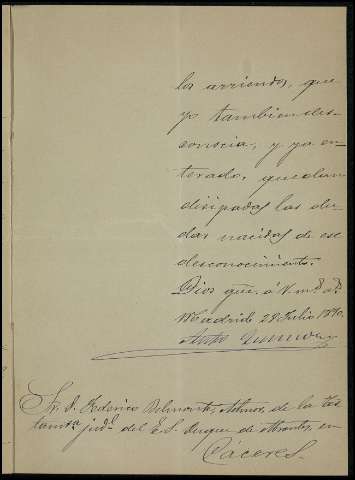 los arriendos, que
yo tambien des-
conocia, y ya en-
terado, quedan
disipadas las du-
das nacidas de ese
desconocimiento.
Dios gue. á V. m.s a.s
Madrid 28 Julio 1890.
Sr. D. Federico Belmonte, Admor. de la tes
tamta. judl. del E. S. Duque de Abrantes, en
Cáceres.